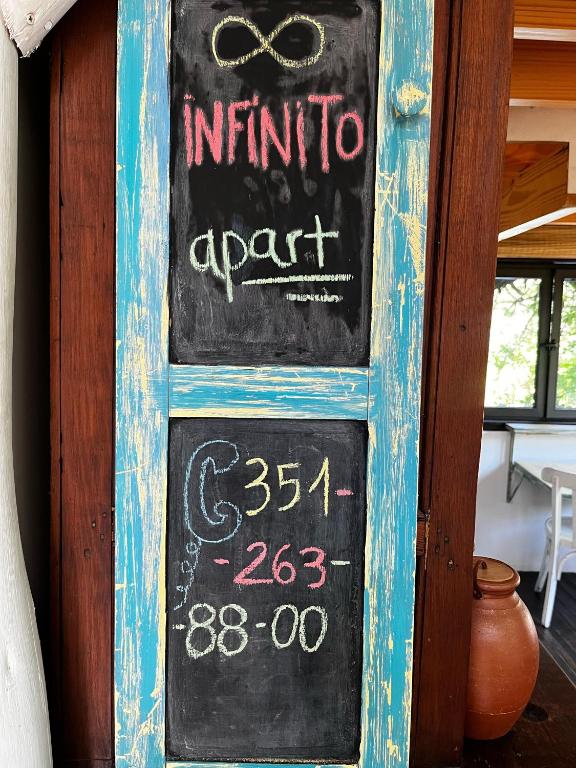 ∞
iNFiNiTO
apart
351-
-263-
-88-00